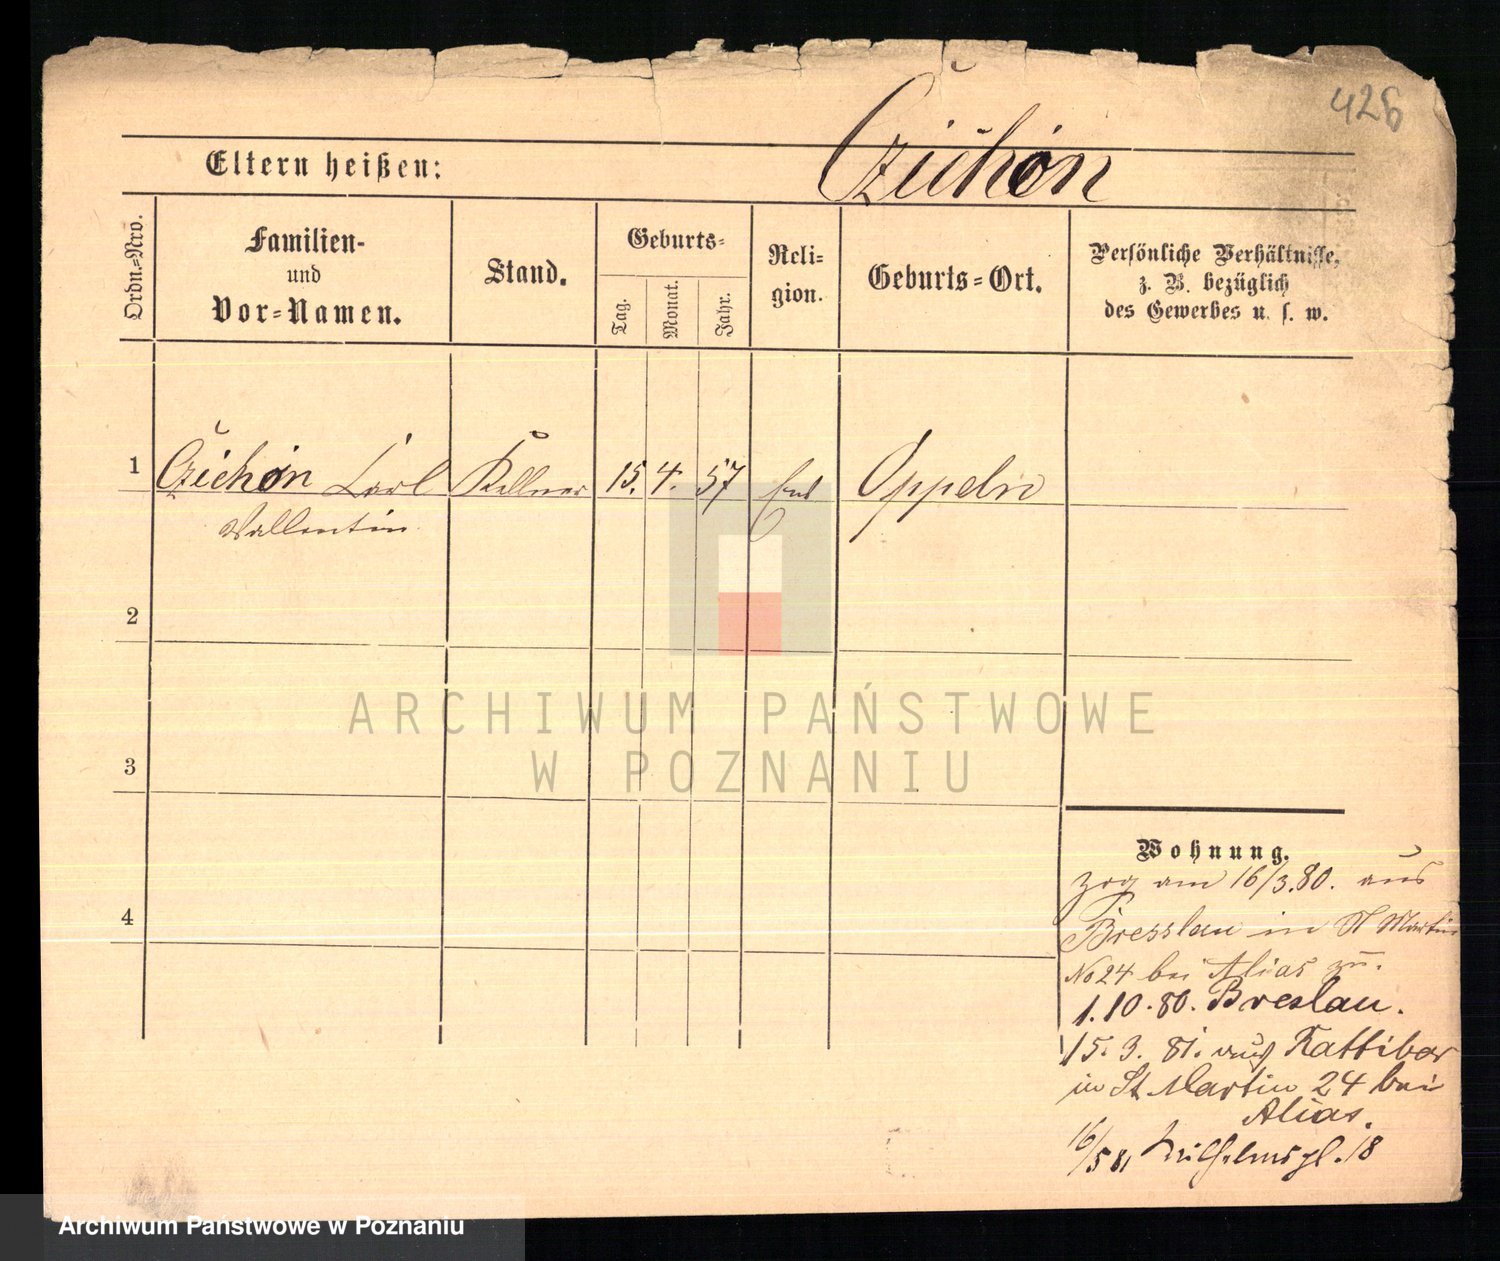 426
Czichon
Eltern heißen:
Ordn.=Nro.
Familien-
und
Vor=Namen.
Stand.
Geburts=
Tag.
Monat.
Jahr.
Reli=
gion.
Geburts=Ort.
Persönliche Verhältnisse,
z. B. bezüglich
des Gewerbes u. s. w.
1 Czichon Carl Kellner 15. 4. 57 Oppeln
Vallentin
2
3
4
ARCHIWUM PAŃSTWOWE
W POZNANIU
Wohnung.
zog am 16/3.80. aus
Bresslau in St Martin
No 24 bei Alias zu.
1.10.80. Breslau.
15. 3. 81. aus Rattibor
in St Martin 24 bei
Alias.
16/5 81 Wilhelmspl. 18
Archiwum Państwowe w Poznaniu